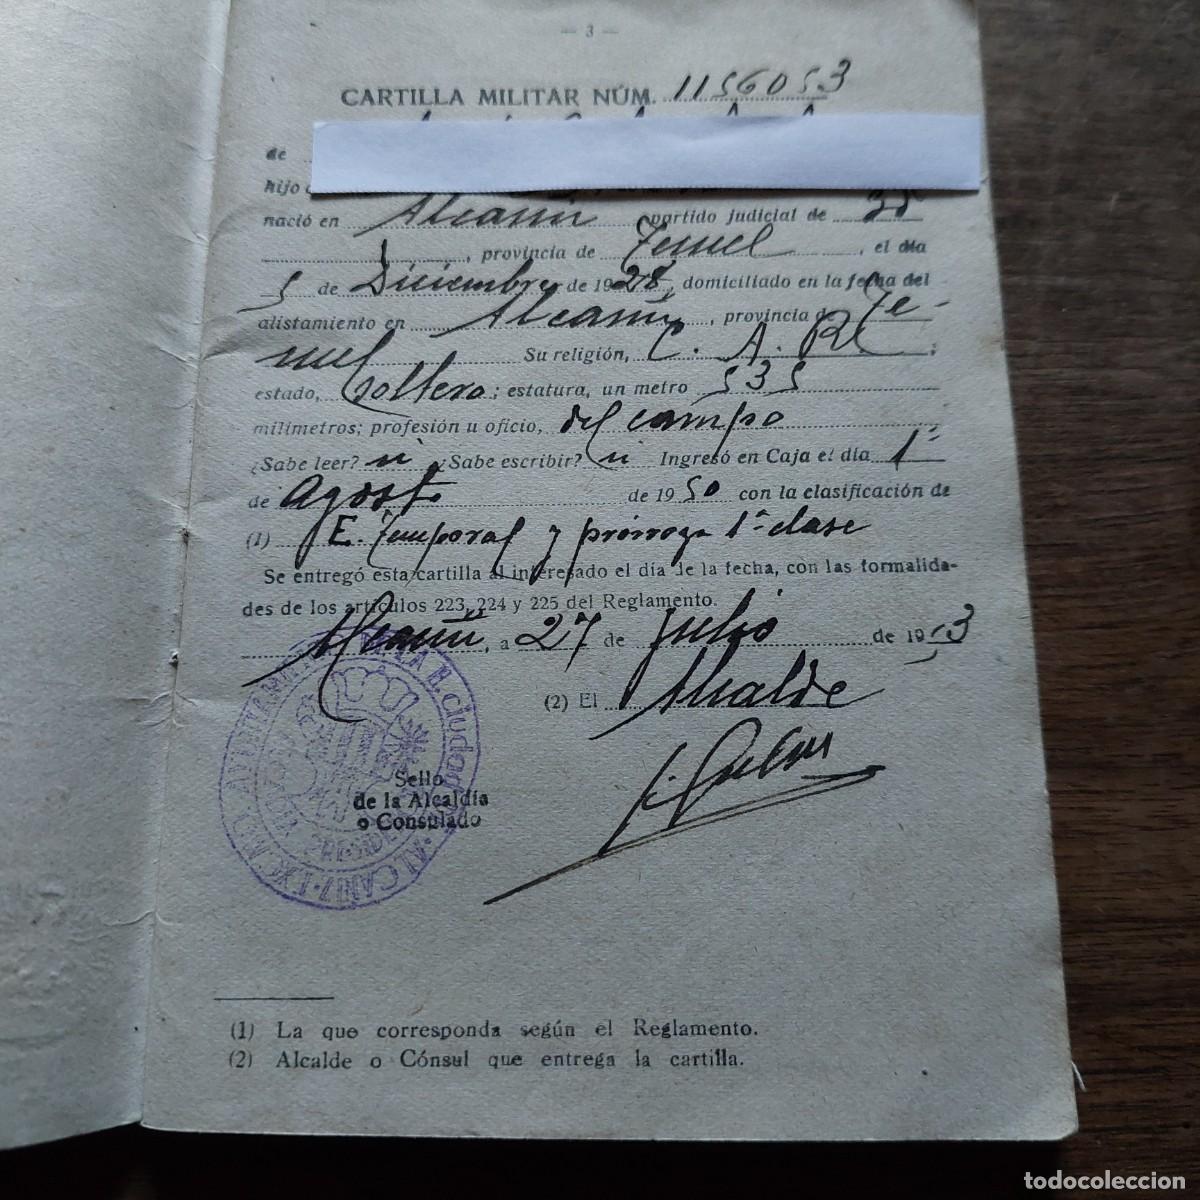 — 3 —
CARTILLA MILITAR NÚM. 1156053
de
hijo
nació en Alcañiz partido judicial de
, provincia de Teruel, el día
5 de Diciembre de 1928, domiciliado en la fecha del
alistamiento en Alcañiz, provincia de Te-
ruel Su religión, C. A. R.;
estado, Soltero; estatura, un metro 535
milímetros; profesión u oficio, del campo
¿Sabe leer? si ¿Sabe escribir? si Ingresó en Caja el día 1º
de Agosto de 1950 con la clasificación de
(1) E. Temporal y prórroga 1ª clase
Se entregó esta cartilla al interesado el día de la fecha, con las formalida-
des de los artículos 223, 224 y 225 del Reglamento.
Alcañiz, a 27 de Julio de 1953
(2) El Alcalde
Sello
de la Alcaldía
o Consulado
EXCMO. AYUNTAMIENTO DE LA M. H. Ciudad ALCAÑIZ
PRESIDE
(1) La que corresponda según el Reglamento.
(2) Alcalde o Cónsul que entrega la cartilla.
todocoleccion